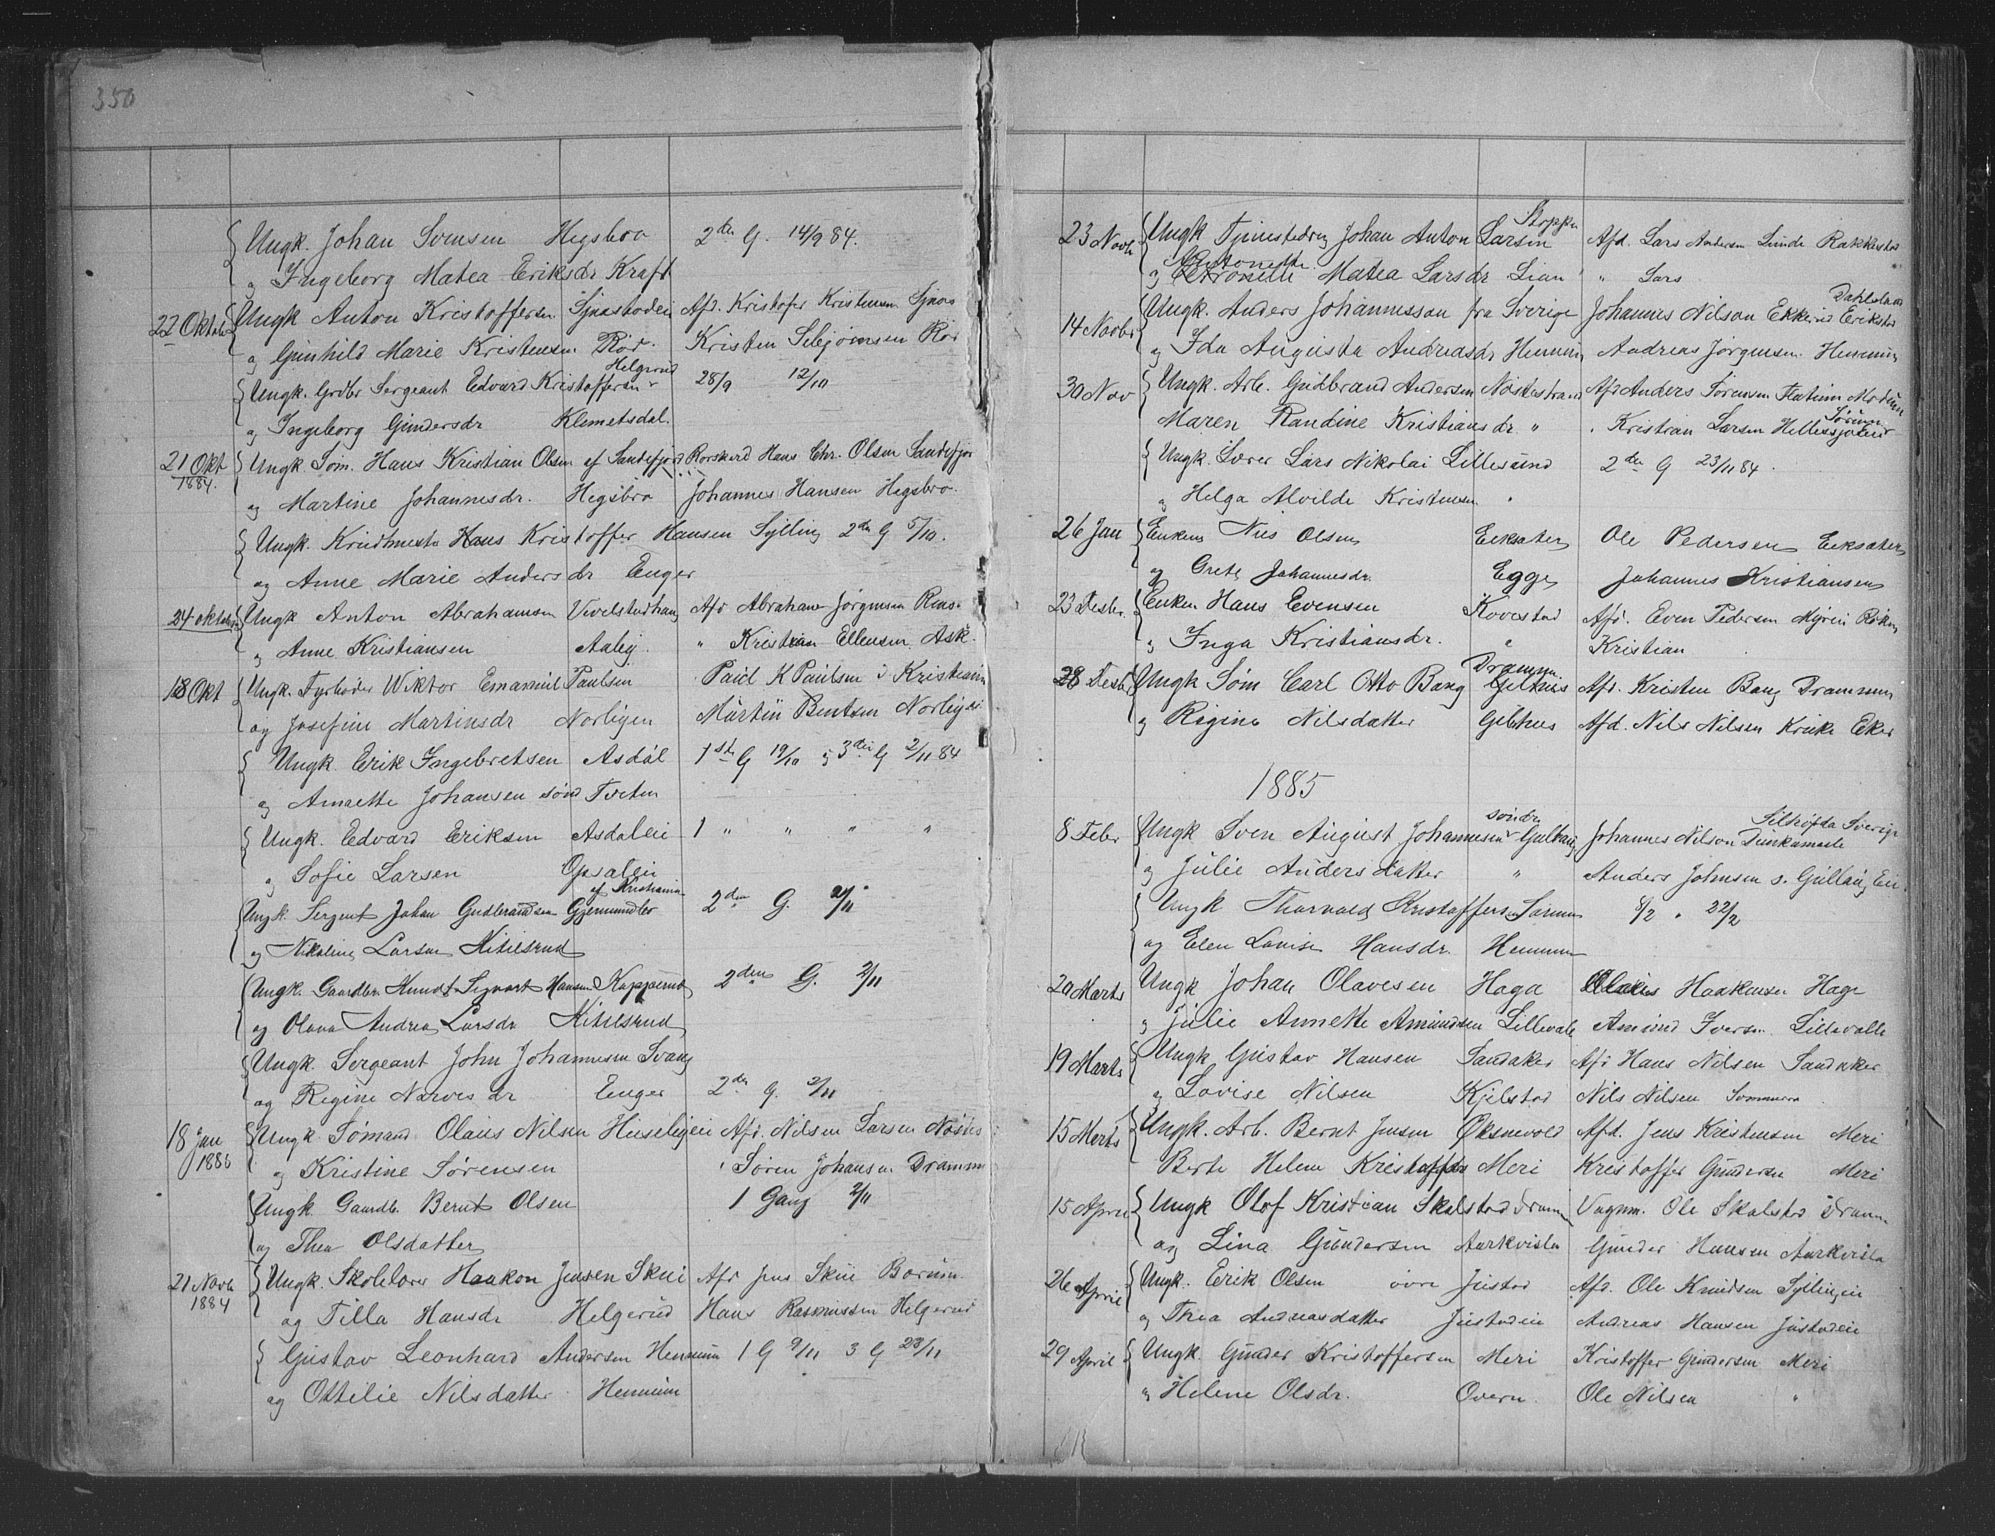 350
Ungk. Johan Svensen Hegsbro 2den G. 14/9 84.
og Ingeborg Matea Eriksdr Kraft
22 Oktober Ungk Anton Kristoffersen Afd. Kristofer Kristensen
og Gunhild Marie Kristensen Rød. Kristen
Helgerud
Ungk. Grdbr Sergeant Edvard Kristoffersen 28/9 12/10
og Ingeborg Gundersdr Klemetsdal.
21 Okt Ungk Søm. Hans Kristian Olsen af Sandefjord Hans Chr. Olsen Sandefjor
1884.
og Martine Johannesdr. Hegsbro Johannes Hansen Hegsbro.
Ungk. Hans Kristoffer Hansen Sylling 2den G 5/10.
og Anne Marie Andersdr Enger
24 oktober Ungk Anton Abrahamsen Vivelstadhaug Afd Abraham Jørgensen
og Anne Kristiansen Aaby. " Kristian Ellensen Ask.
18 Okt Ungk. Fyrbøder Wiktor Emanuel Paulsen Paul K Paulsen i Kristiania
og Josefine Martinsdr Norligen Martin Bentsen Norligen
Ungk. Erik Ingebretsen Asdøl 1ste G 19/10 og 3die G 2/11 84
og Annette Johansen sønd Tveten
Ungk. Edvard Eriksen Asdøleie 1 " " " "
og Sofie Larsen Opsaleie
af Kristiania
Ungk. Sergent Johan Gudbrandsen Gjermundbo 2den G. 2/11
og Nikoline Larsen Hitilsrud
Ungk. Gaardbr. Knudt Sigvart Hansen Kopperud 2den G. 2/11
og Olava Andrea Larsdr Hitilsrud
Ungk Sergeant John Johannesen Svang
og Regine Narvesdr Enger 2den G. 2/11
18 Jan Ungk Sømand Olaus Nilsen Huseligeie Afd. Nilsen Larsen
1885
og Kristine Sørensen " Søren Johansen Drammen
Ungk Gaardbr. Bernt Olsen 1 Gang 2/11
og Thea Olsdatter
21 Novb Ungk. Skolelærer Haakon Jensen Skui Afd Jens Skui Bærum.
1884
og Tilla Hansdr Helgerud Hans Rasmussen Helgerud
Gustav Leonhard Andersen Hennum 1 G 9/11 3 G 23/11
og Ottilie Nilsdatter Hennum
Stoppen
23 Novb Ungk Tjenestedreng Johan Anton Larsen Afd. Lars Andersen Lunde Rakkestad
Antonette
og Petronelle Matea Larsdr Lian " Lars
Dahlsland
14 Novbr Ungk. Anders Johannesson fra Sverige Johannes Nilson
og Ida Augusta Andreasdr Hennum Andreas Jørgensen Hennum
30 Nov Ungk. Arb. Gudbrand Andersen Næstestrand Afd Anders Sørensen Modum
Maren Randine Kristiansdr " " Kristian Larsen
Ungk. Lærer Lars Nikolai Lillesund 2den G 23/11 84.
og Helga Alvilde Kristensen "
26 Jan Enkem Nils Olsen Eeksæter Ole Pedersen Eeksæter
og Grete Johannesdr. Egge Johannes Kristiansen
23 Desbr. Enkem Hans Evensen Kovestad Afd. Even Pedersen Myren Røken
og Inga Kristiansdr. " Kristian
Drammen
28 Desbr Ungk Søm Carl Otto Bang Gjelhus Afd. Kristen Bang Drammen
og Regine Nilsdatter Gjelhus Afd. Nils Nilsen Eker
1885
søndre
8 Febr Ungk Sven August Johannesen Gullaug Johannes Nilson
og Julie Andersdatter " Anders Johnsen s. Gullaug Eie.
Ungk Thorvald Kristoffersen 8/2 " 22/2
og Elen Lovise Hansdr. Hennum
20 Marts Ungk Johan Olavesen Haga Haakensen Haga
og Julie Annette Amundsen Lillevale Amund Iversen Lillevalle
19 Marts Ungk Gustav Hansen Sandaker Afd Hans Nilsen Sandaker
og Lovise Nilsen Kjelstad Nils Nilsen
15 Marts Ungk. Arb. Bernt Jensen Øksnevold Afd. Jens Kristensen Meri
Berte Helene Kristoffersdr Meri Kristoffer Gundersen Meri
15 April Ungk Olof Kristian Skalstad Dramm Vognm. Ole Skalstad Dramm
og Lina Gundersen Aarkvisla Gunder Hansen Aarkvisla
26 April Ungk. Erik Olsen øvre Justad Afd. Ole Knudsen Syllingen
og Thea Andreasdatter Justadeie Andreas Hansen Justadeie
29 April Ungk. Gunder Kristoffersen Meri Kristoffer Gundersen Meri
og Helene Olsdr. Overn. Ole Nilsen "